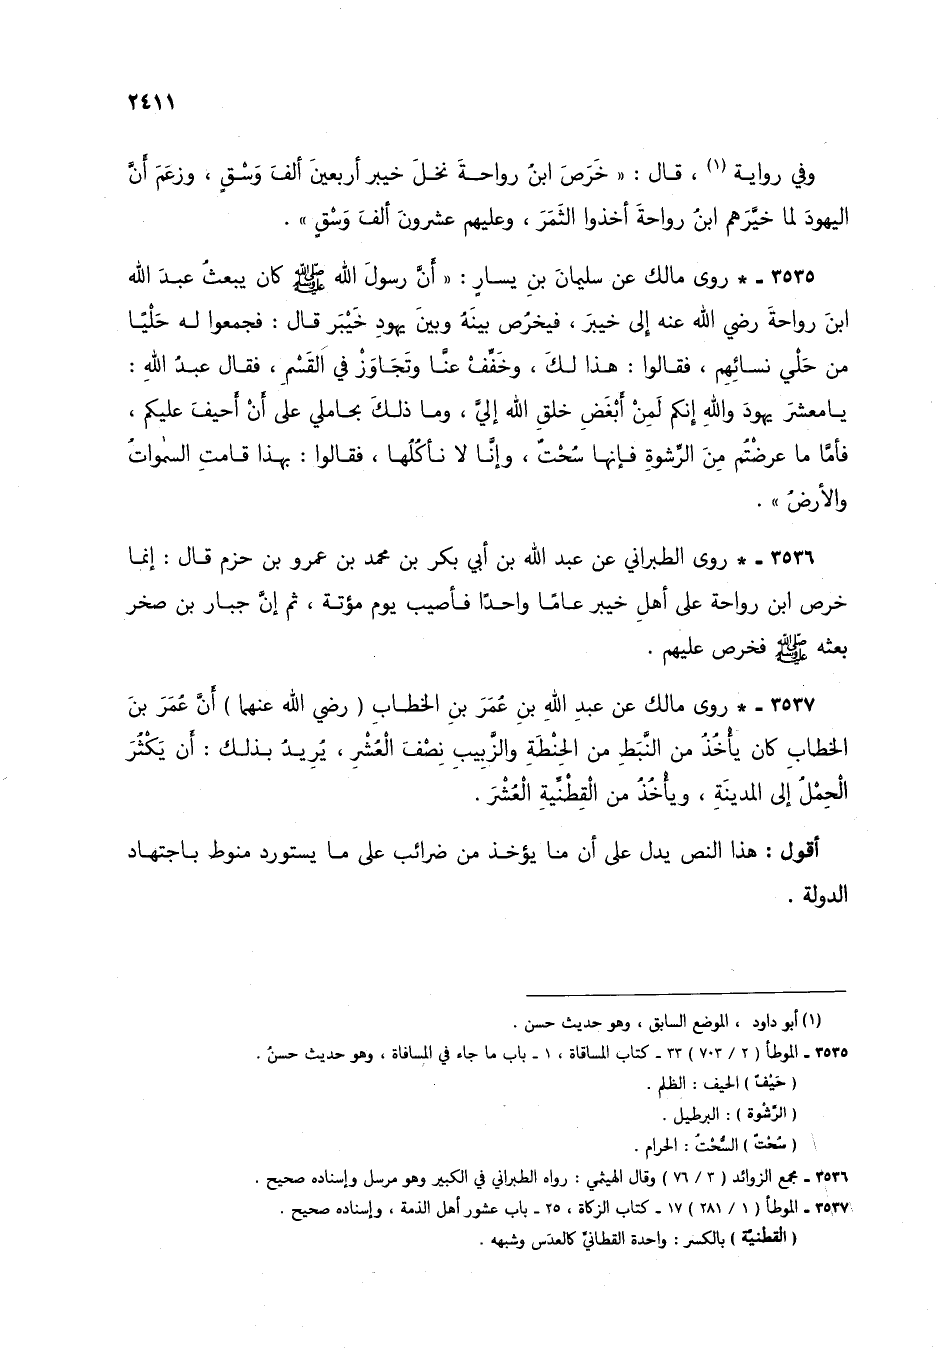 ٢٤١١
وفي رواية (١) ، قال : « خَرَصَ ابنُ رواحةَ نخلَ خيبر أربعينَ ألفَ وَسْقٍ ، وزعَمَ أَنَّ
اليهودَ لما خيَّرَهم ابنُ رواحةَ أخذوا الثَمَرَ ، وعليهم عشرونَ ألفَ وَسْقٍ » .
٣٥٣٥ - * روى مالك عن سليمانَ بنِ يسارٍ : « أَنَّ رسولَ الله ﷺ كان يبعثُ عبدَ الله
ابنَ رواحةَ رضي الله عنه إلى خيبرَ ، فيخرُص بينَهُ وبينَ يهودِ خَيْبَر قال : فجمعوا له حَلْيًا
من حَلْي نسائِهم ، فقالوا : هذا لكَ ، وخَفِّفْ عنَّا وتَجَاوَزْ في القَسْمِ ، فقال عبدُ اللهِ :
يامعشرَ يهودَ واللهِ إنكم لَمِنْ أَبْغَضِ خلقِ اللهِ إليَّ ، وما ذلكَ بحاملي على أَنْ أَحيفَ عليكم ،
فأمَّا ما عرضْتُم مِنَ الرِّشوةِ فإنها سُحْتٌ ، وإنَّا لا نأكُلُها ، فقالوا : بهذا قامتِ السمٰواتُ
والأرضُ » .
٣٥٣٦ - * روى الطبراني عن عبد الله بن أبي بكر بن محمد بن عمرو بن حزم قال : إنما
خرص ابن رواحة على أهلِ خيبر عامًا واحدًا فأصيب يوم مؤتة ، ثم إنَّ جبار بن صخر
بعثه ﷺ فخرص عليهم .
٣٥٣٧ - * روى مالك عن عبدِ اللهِ بنِ عُمَرَ بنِ الخطابِ ( رضي الله عنهما ) أَنَّ عُمَرَ بنَ
الخطابِ كان يأْخُذُ من النَّبَطِ من الحِنْطَةِ والزَّبيبِ نِصْفَ الْعُشْرِ ، يُريدُ بذلك : أن يَكْثُرَ
الْحِمْلُ إلى المدينَةِ ، ويأْخُذُ من الْقِطْنِّيةِ الْعُشْرَ .
أقول : هذا النص يدل على أن ما يؤخذ من ضرائب على ما يستورد منوط باجتهاد
الدولة .
(١) أبو داود ، الموضع السابق ، وهو حديث حسن .
٣٥٣٥ - الموطأ ( ٢ / ٧٠٣ ) ٣٣ - كتاب المساقاة ، ١ - باب ما جاء في المسافاة ، وهو حديث حسنٌ .
( حَيْفٌ ) الحيف : الظلم .
( الرِّشْوة ) : البرطيل .
( سُحْتٌ ) السُّحْتُ : الحرام .
٣٥٣٦ - مجمع الزوائد ( ٣ / ٧٦ ) وقال الهيثمي : رواه الطبراني في الكبير وهو مرسل وإسناده صحيح .
٣٥٣٧ - الموطأ ( ١ / ٢٨١ ) ١٧ - كتاب الزكاة ، ٢٥ - باب عشور أهل الذمة ، وإسناده صحيح .
( القطنيّة ) بالكسر : واحدة القطانيِّ كالعدَس وشبهه .